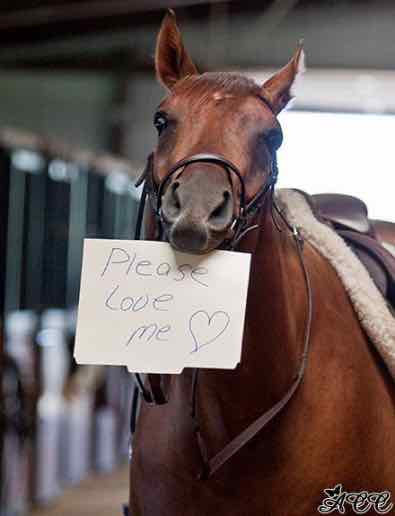 Please
Love
me ♡
ACC